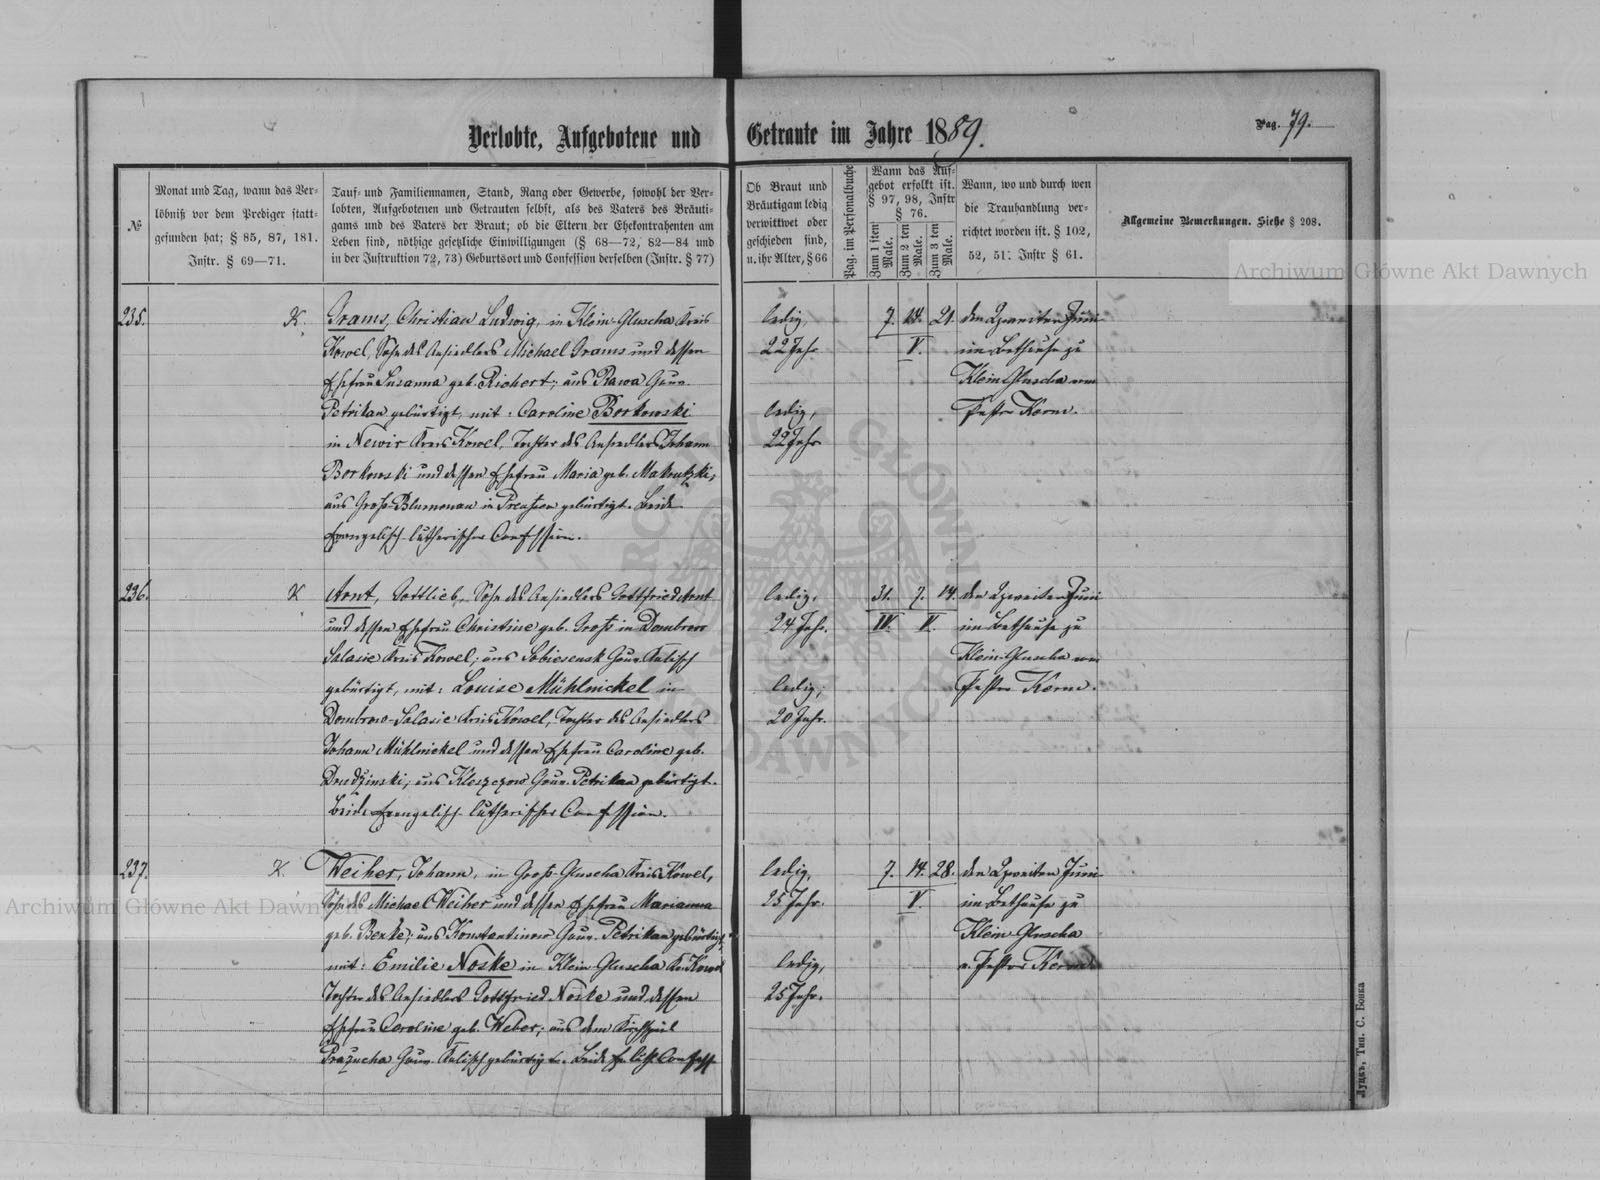 Verlobte, Aufgebotene und Getraute im Jahre 1889.
Pag. 79.
№
Monat und Tag, wann das Ver-
löbniß vor dem Prediger statt-
gefunden hat; § 85, 87, 181.
Instr. § 69—71.
Tauf- und Familiennamen, Stand, Rang oder Gewerbe, sowohl der Ver-
lobten, Aufgebotenen und Getrauten selbst, als des Vaters des Bräuti-
gams und des Vaters der Braut; ob die Eltern der Ehekontrahenten am
Leben sind, nöthige gesetzliche Einwilligungen (§ 68—72, 82—84 und
in der Justruktion 72, 73) Geburtsort und Confession derselben (Instr. § 77)
Ob Braut und
Bräutigam ledig
verwittwet oder
geschieden sind,
u. ihr Alter, § 66
Pag. im Personalbuche
Wann das Auf-
gebot erfolkt ist.
§ 97, 98, Instr
§ 76.
Zum 1 sten
Male.
Zum 2 ten
Male.
Zum 3 ten
Male.
Wann, wo und durch wen
die Trauhandlung ver-
richtet worden ist. § 102,
52, 51. Instr § 61.
Allgemeine Bemerkungen. Siehe § 208.
Archiwum Główne Akt Dawnych
235.
K.
Grams, Christian Ludwig, in Klein-Gluscha Kreis
Kowel, Sohn des Ansiedlers Michael Grams und dessen
Ehefrau Susanna geb. Richert; aus Rawa Gouv.
Petrikau gebürtigt, mit: Caroline Borkowski
in Newir Kreis Kowel, Tochter des Ansiedlers Johann
Borkowski und dessen Ehefrau Maria geb. Makutzki,
aus Groß-Blumenau in Preußen gebürtigt. Beide
Evangelisch-lutherischer Confession.
ledig,
22 Jahr
ledig,
22 Jahr
7. 14. 21.
V.
den Zweiten Juni
im Bethause zu
Klein-Gluscha von
Pastor Kerm.
236.
K
Arnt, Gottlieb, Sohn des Ansiedlers Gottfried Arnt
und dessen Ehefrau Christine geb. Groß in Dombrow
Salasie Kreis Kowel; aus Sobiesensk Gouv. Kalisch
gebürtigt, mit: Louise Mühlnickel in
Dombrow-Salasie Kreis Kowel, Tochter des Ansiedlers
Johann Mühlnickel und dessen Ehefrau Caroline geb.
Drudzinski; aus Kleszczow Gouv. Petrikau gebürtigt.
Beide Evangelisch-lutherischer Confession.
ledig,
24 Jahr.
ledig,
20 Jahr.
31. 7. 14.
IV. V.
den Zweiten Juni
im Bethause zu
Klein-Gluscha von
Pastor Kerm.
237.
K.
Weiher, Johann, in Groß-Gluscha Kreis Kowel,
Sohn des Michael Weiher und dessen Ehefrau Marianna
geb. Benke; aus Konstantinow Gouv. Petrikau gebürtigt,
mit: Emilie Noske in Klein-Gluscha Kr. Kowel
Tochter des Ansiedlers Gottfried Noske und dessen
Ehefrau Caroline geb. Weber; aus dem Kirchspiel
Prazucha Gouv. Kalisch gebürtigt. Beide Ev. luth. Confess
ledig,
25 Jahr.
ledig,
25 Jahr.
7. 14. 28.
V.
den Zweiten Juni
im Bethause zu
Klein-Gluscha
v. Pastor Kerm
Archiwum Główne Akt Dawnych
Луцкъ, Тип. С. Бонка